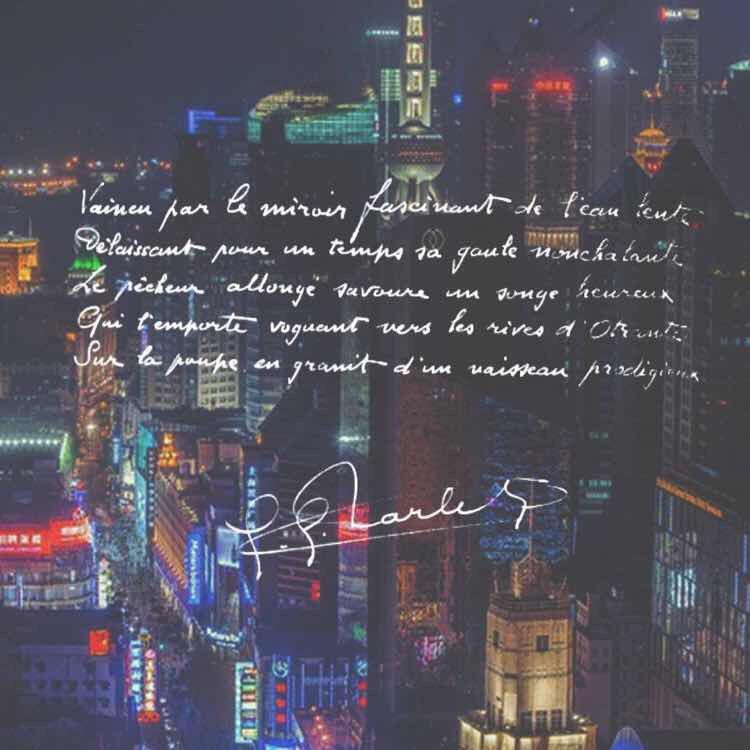 Vaincu par le miroir fascinant de l'eau lente
Délaissant pour un temps sa gaule nonchalante
Le pêcheur allongé savoure un songe heureux
Qui l'emporte voguant vers les rives d'Otrante
Sur la poupe en granit d'un vaisseau prodigieux